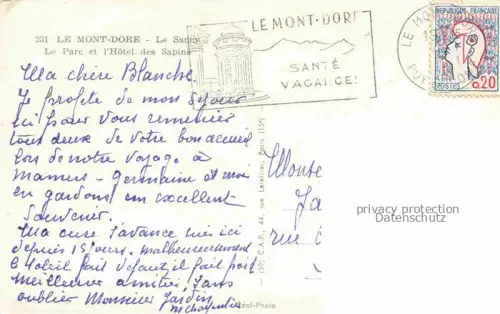 231 LE MONT-DORE - Le Sancy
Le Parc et l'Hôtel des Sapins
LE MONT-DORE
SANTÉ
VACANCES
LE MO
PUY
REPUBLIQUE FRANÇAISE
POSTES 0,20
Ma chère Blanche
Je profite de mon séjour
ici pour vous remercier
tous deux de votre bon accueil
lors de notre voyage à
Mamers - Germaine et moi
en gardons un excellent
souvenir.
Ma cure s'avance suis ici
depuis 15 jours. malheureusement
le soleil fait défaut, il fait froid
Meilleures amitiés, sans
oublier Monsieur Jardin
M Charpentier
(59) C.A.P., 44, rue Letellier, Paris (15e)
Réal-Photo
Monsi
Ja
rue
privacy protection
Datenschutz